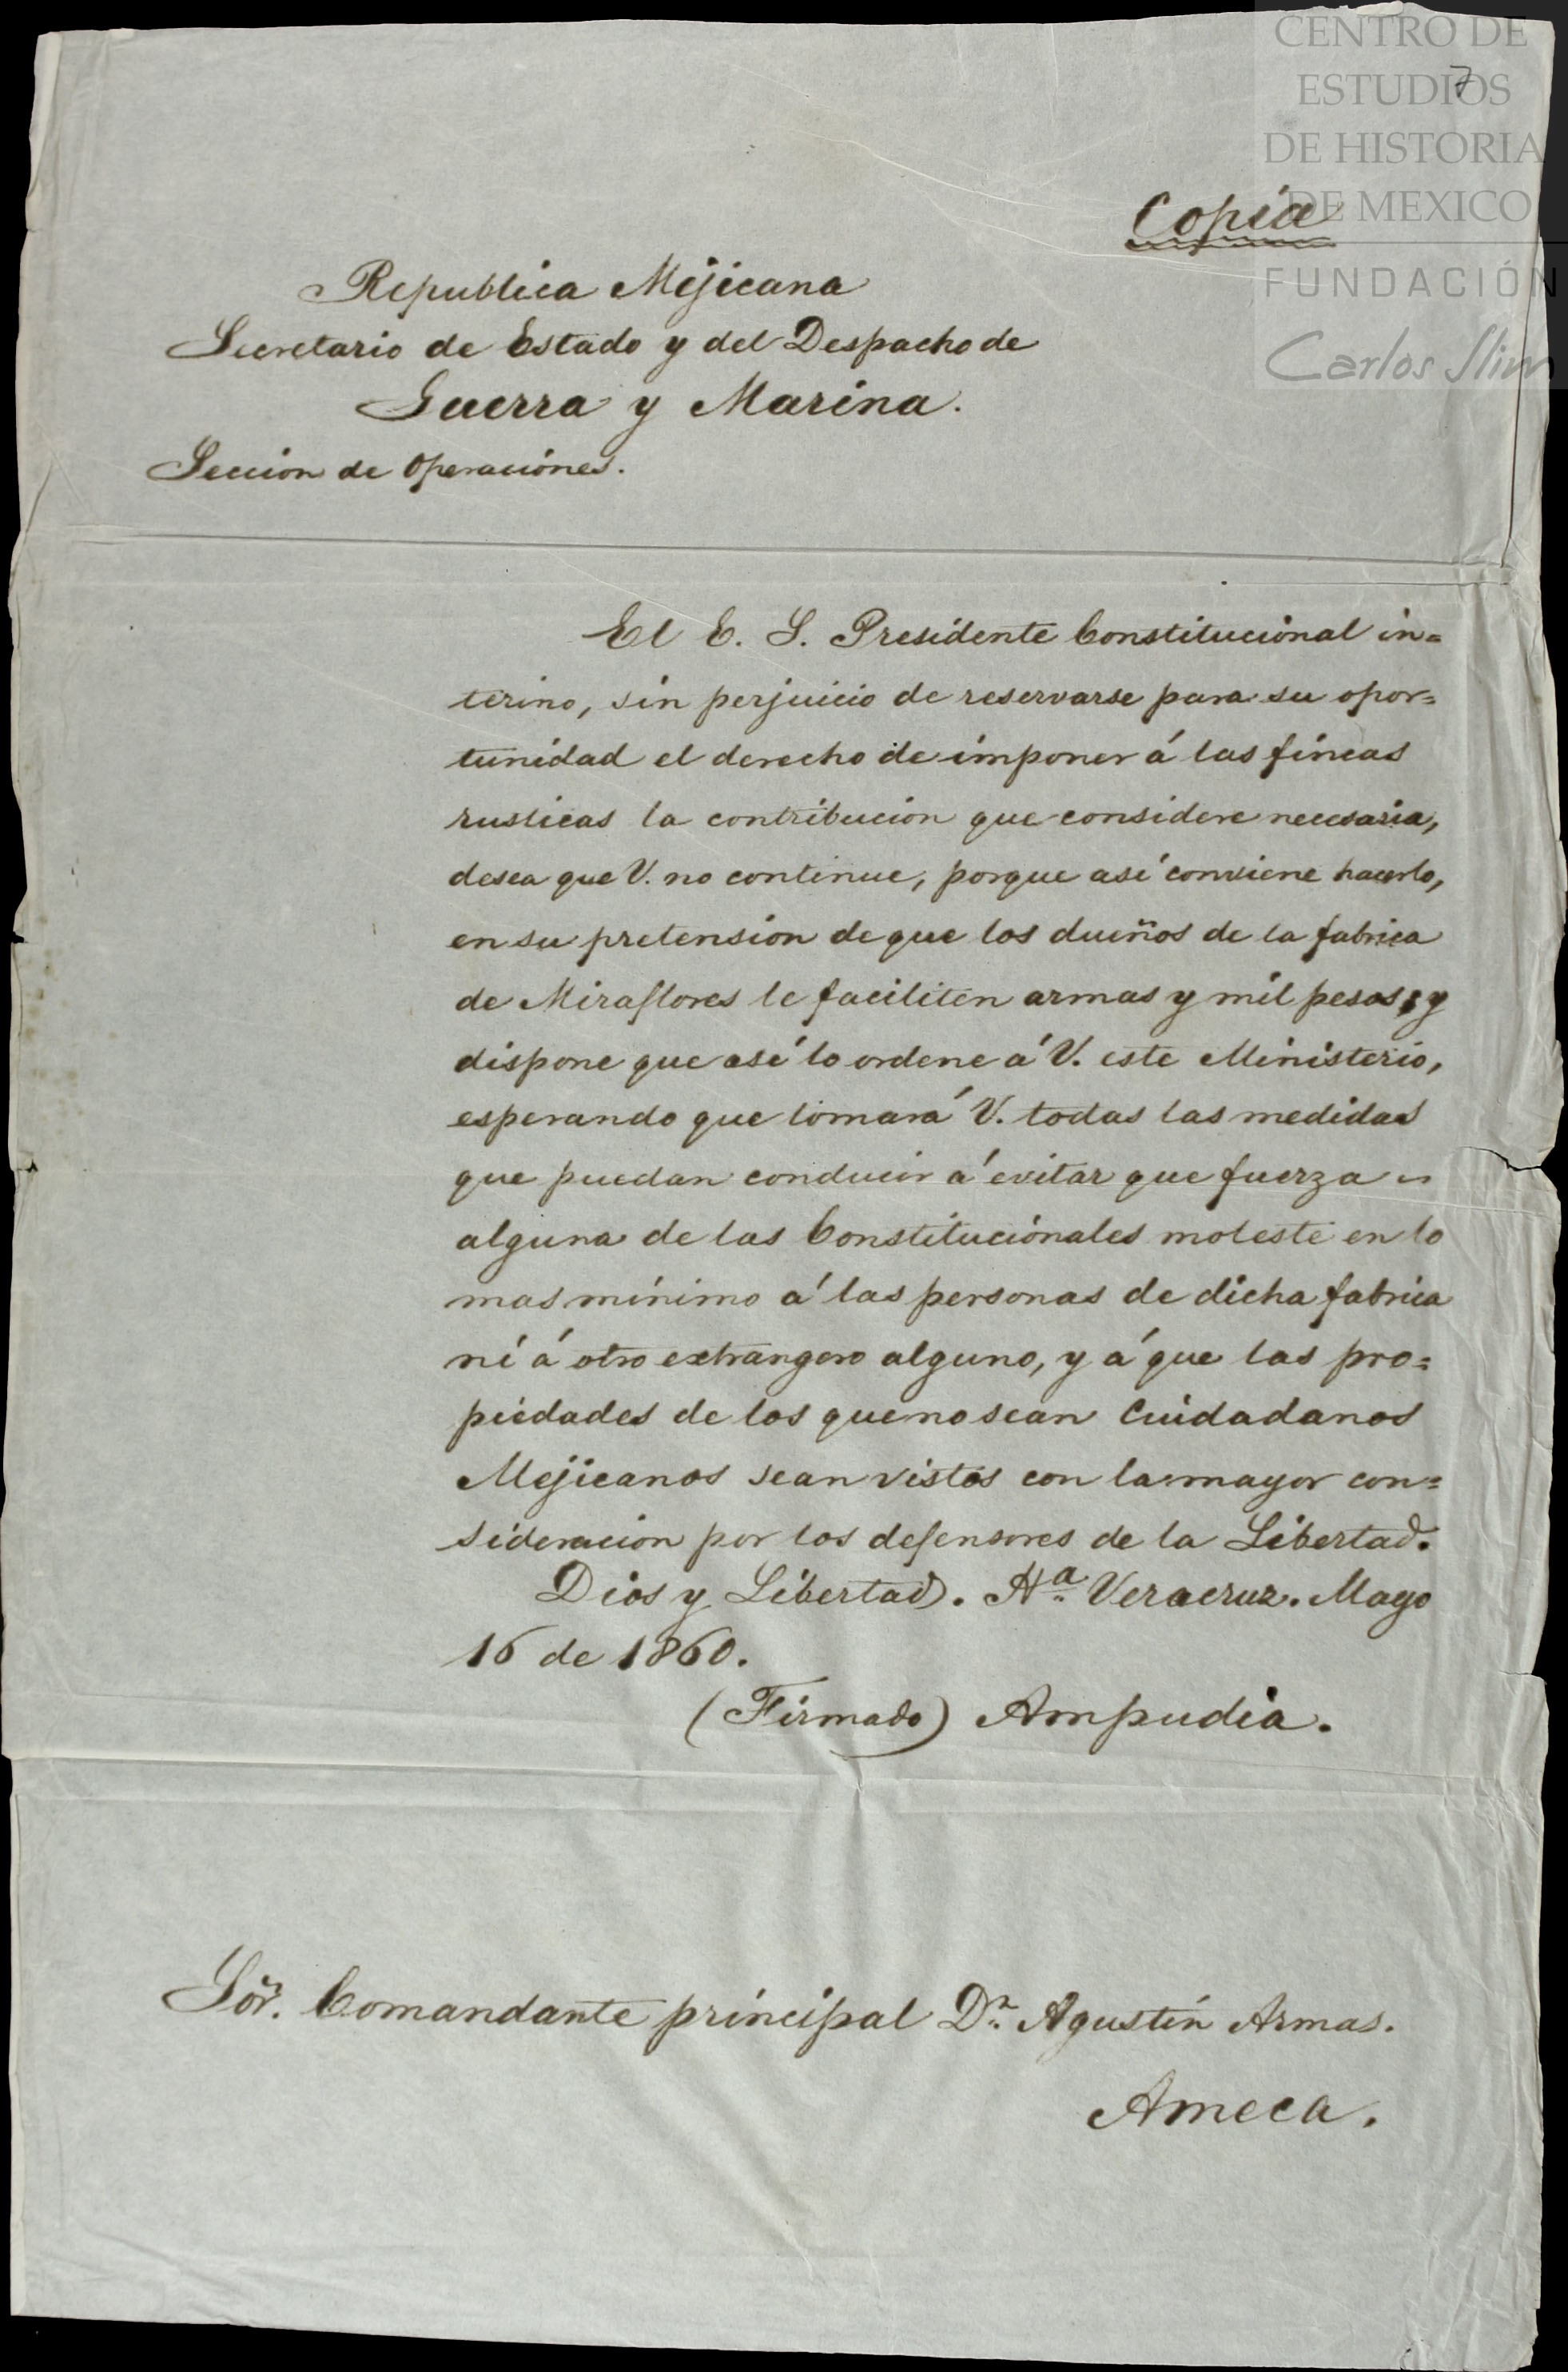 CENTRO DE
ESTUDIOS
DE HISTORIA
DE MEXICO
FUNDACIÓN
Carlos Slim
7
Copia
Republica Mejicana
Secretario de Estado y del Despacho de
Guerra y Marina.
Seccion de Operaciónes.
El E. S. Presidente Constitucional in=
terino, sin perjuicio de reservarse para su opor=
tunidad el derecho de imponer á las fincas
rusticas la contribucion que considere necesaria,
desea que V. no continue, porque así conviene hacerlo,
en su pretension de que los dueños de la fabrica
de Miraflores le faciliten armas y mil pesos; y
dispone que así lo ordene á V. este Ministerio,
esperando que tomará V. todas las medidas
que puedan conducir á evitar que fuerza =
alguna de las Constitucionales moleste en lo
mas minimo á las personas de dicha fabrica
ni á otro extrangero alguno, y á que las pro=
piedades de los que no sean Cuidadanos
Mejicanos sean vistos con la mayor con=
sideracion por los defensores de la Libertad.
Dios y Libertad. Hª Veracruz. Mayo
16 de 1860.
(Firmado) Ampudia.
Sõr. Comandante principal Dn. Agustin Armas.
Ameca.